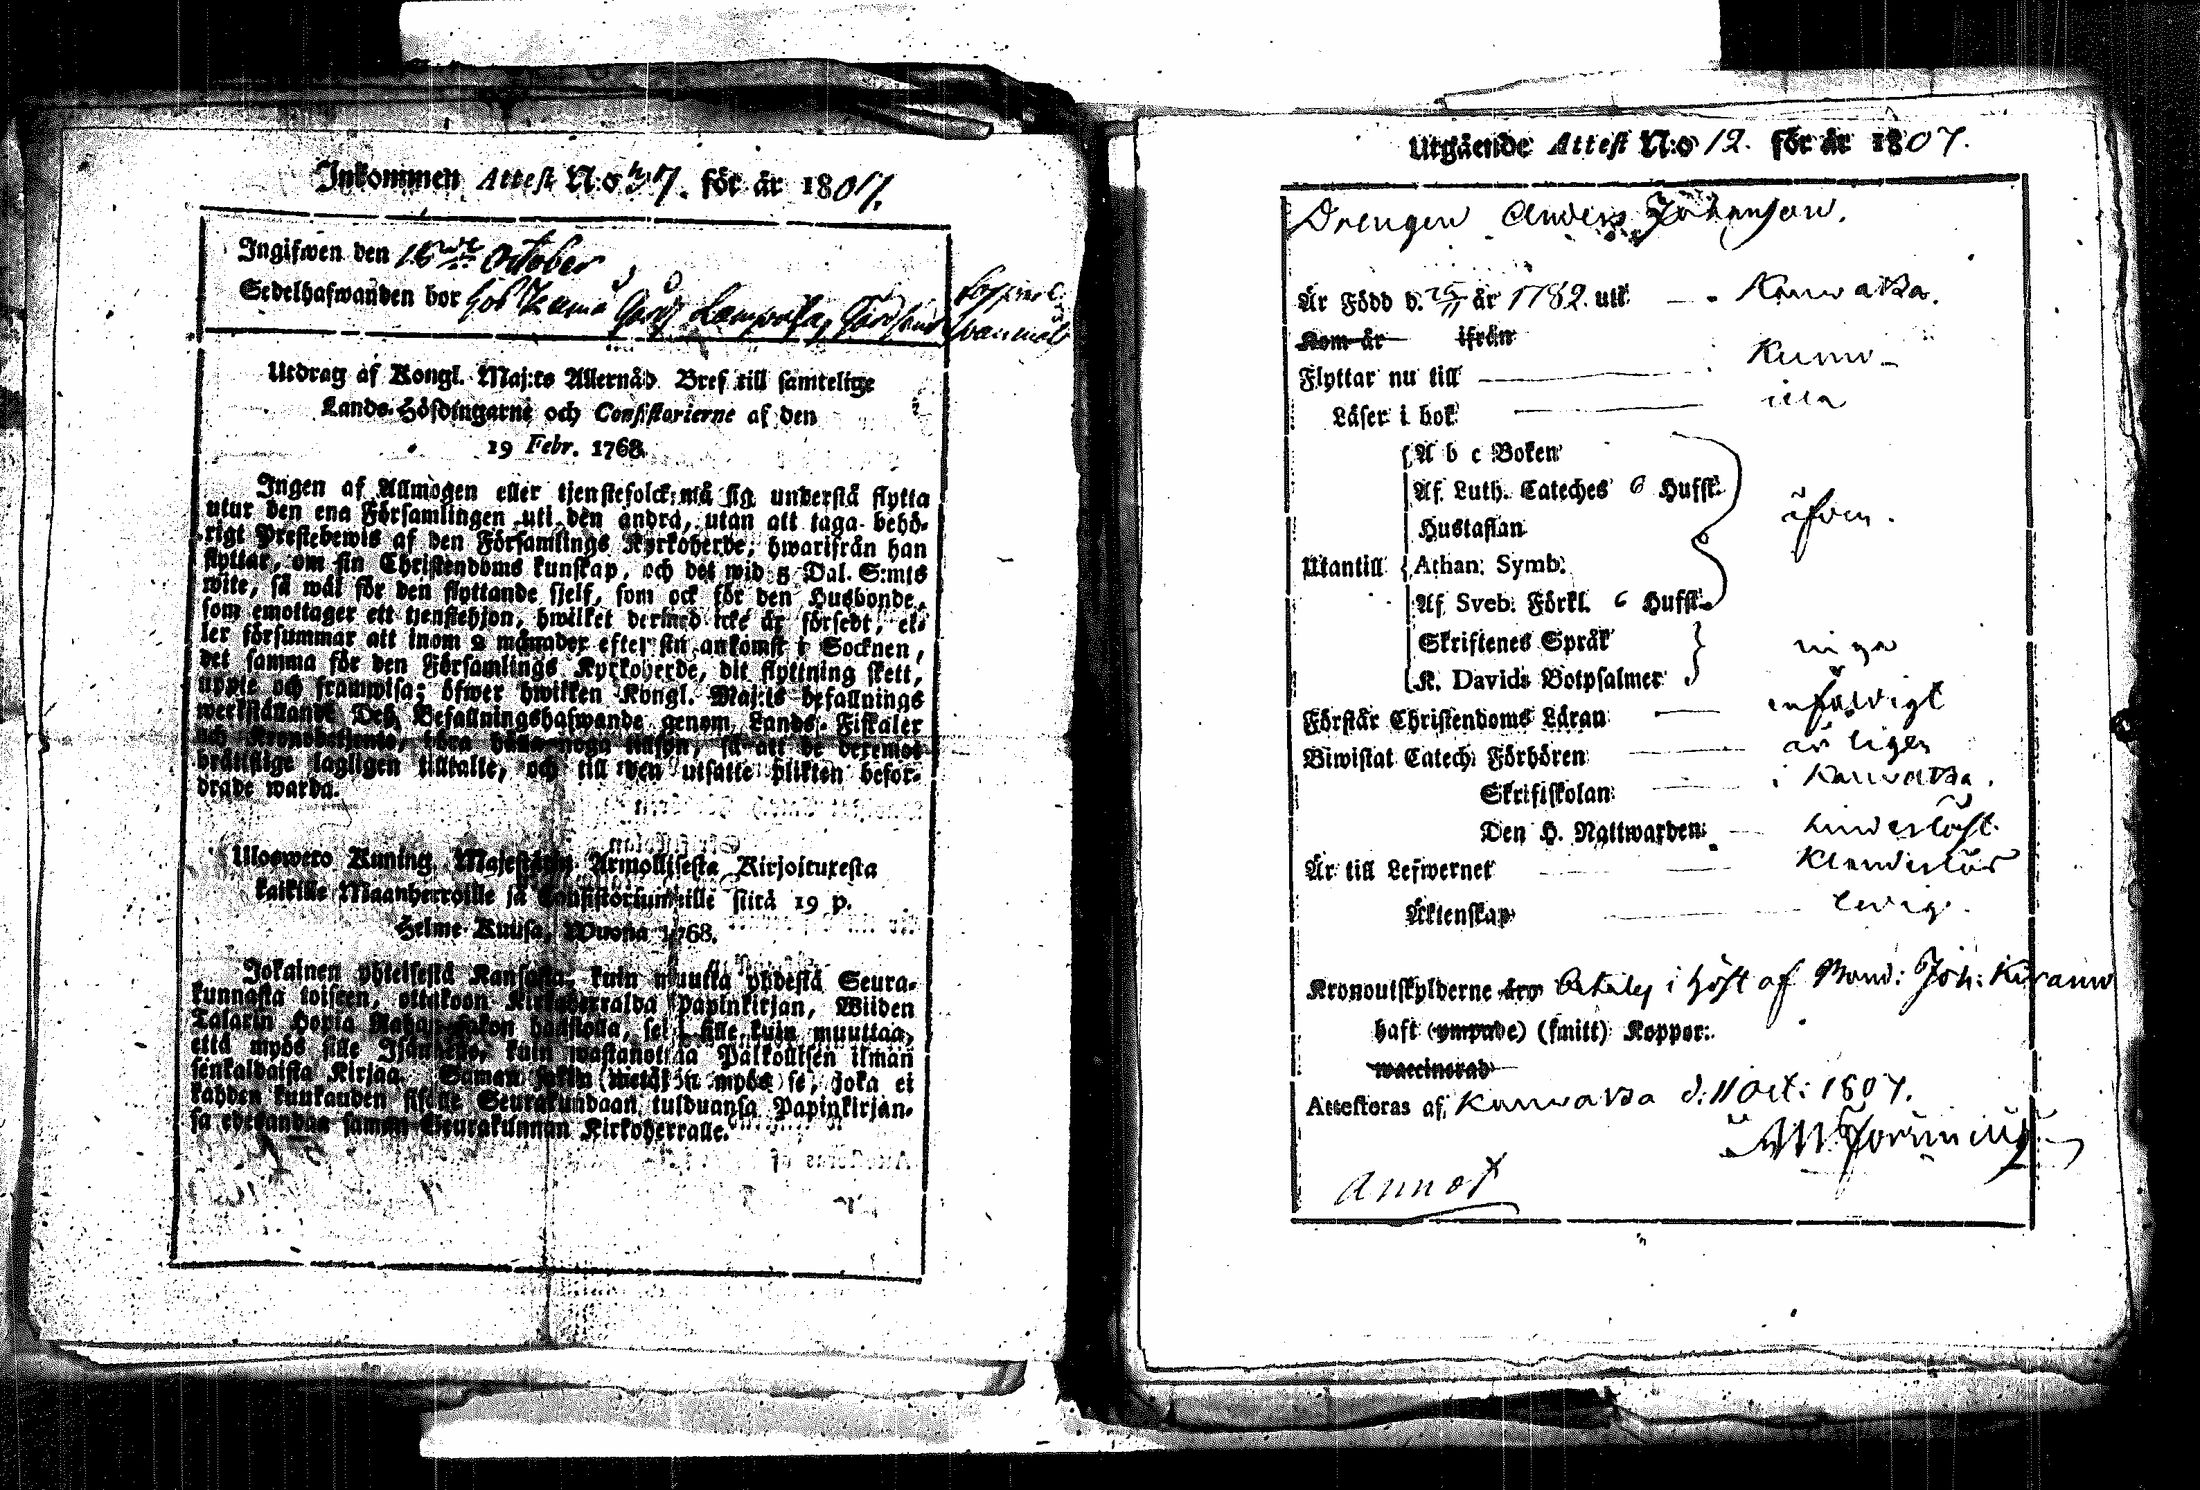 Inkommen Attest N:o 37. för år 1807.
Ingifwen den 18de October
Sedelhafwanden bor hos
Utdrag af Kongl. Maj:ts Allernåd. Bref till samtelige
Lands-Höfdingarne och Consistorierne af den
19 Febr. 1768.
Ingen af Allmogen eller tjenstefolck må sig understå flytta
utur den ena Församlingen uti den andra, utan att taga behö-
rigt Prestebewis af den Församlings Kyrkoherde, hwarifrån han
flyttar, om sin Christendoms kunskap, och det wid 5 Dal. S:mts
wite, så wäl för den flyttande sjelf, som ock för den Husbonde,
som emottager ett tjenstehjon, hwilket dermed icke är försedt, el-
ler försummar att inom 2 månader efter sin ankomst i Socknen,
det samma för den Församlings Kyrkoherde, dit flyttning skett,
uppte och framwisa; öfwer hwilken Kongl. Maj:ts befallnings
werkställande Dess Befallningshafwande genom Lands-Fiskaler
och Kronobetjente, böra hålla noga tillsyn, så att de deremot
brottslige lagligen tilltalte, och till den utsatte plikten befor-
drade warda.
Uloswero Kuning. Majestetin Armollisesta Kirjoituxesta
kaikille Maanherroille ja Consistoriumeille siitä 19 p.
Helme Kuusa, Wuonna 1768.
Jokainen yhteisestä Kansasta, kuin muutta yhdestä Seura-
kunnasta toiseen, ottakoon Kirkoherralda Papinkirjan, Wiiden
Talarin Hopia Rahan sakon haastolla, sekä sille kuin muuttaa,
että myös sille Isännälle, kuin wastanottaa Palkollisen ilman
senkaldaista Kirjaa. Saman sakon wetäköön myös se, joka ei
kahden kuukauden sisälle Seurakundaan tulduansa Papinkirjan-
sa edesandaa saman Seurakunnan Kirkoherralle.
Utgående Attest N:o 12. för år 1807.
Drengen Anders Johansson.
Är Född d. 25/11 år 1782. uti Kauwatsa.
Kom år ifrån
Flyttar nu till Kumo
Läser i bok illa
A b c Boken
Af Luth. Cateches 6 Hufst.
Hustaflan äfwen.
Utantill Athan: Symb:
Af Sveb. Förkl. 6 Hufst.
Skriftenes Språk
K. Davids Botpsalmer inga
Förstår Christendoms Läran enfaldigt
Biwistat Catech. Förhören årligen
Skriftskolan i Kauwatsa.
Den H. Nattwarden
Är till Lefwernet
Äktenskap ledig.
Kronoutskylderne äro betaly i höst af Bond: Joh:
haft (ympade) (smitt) Koppor:
waccinerad
Attesteras af Kauwatsa d: 11 Oct: 1807.
Annot